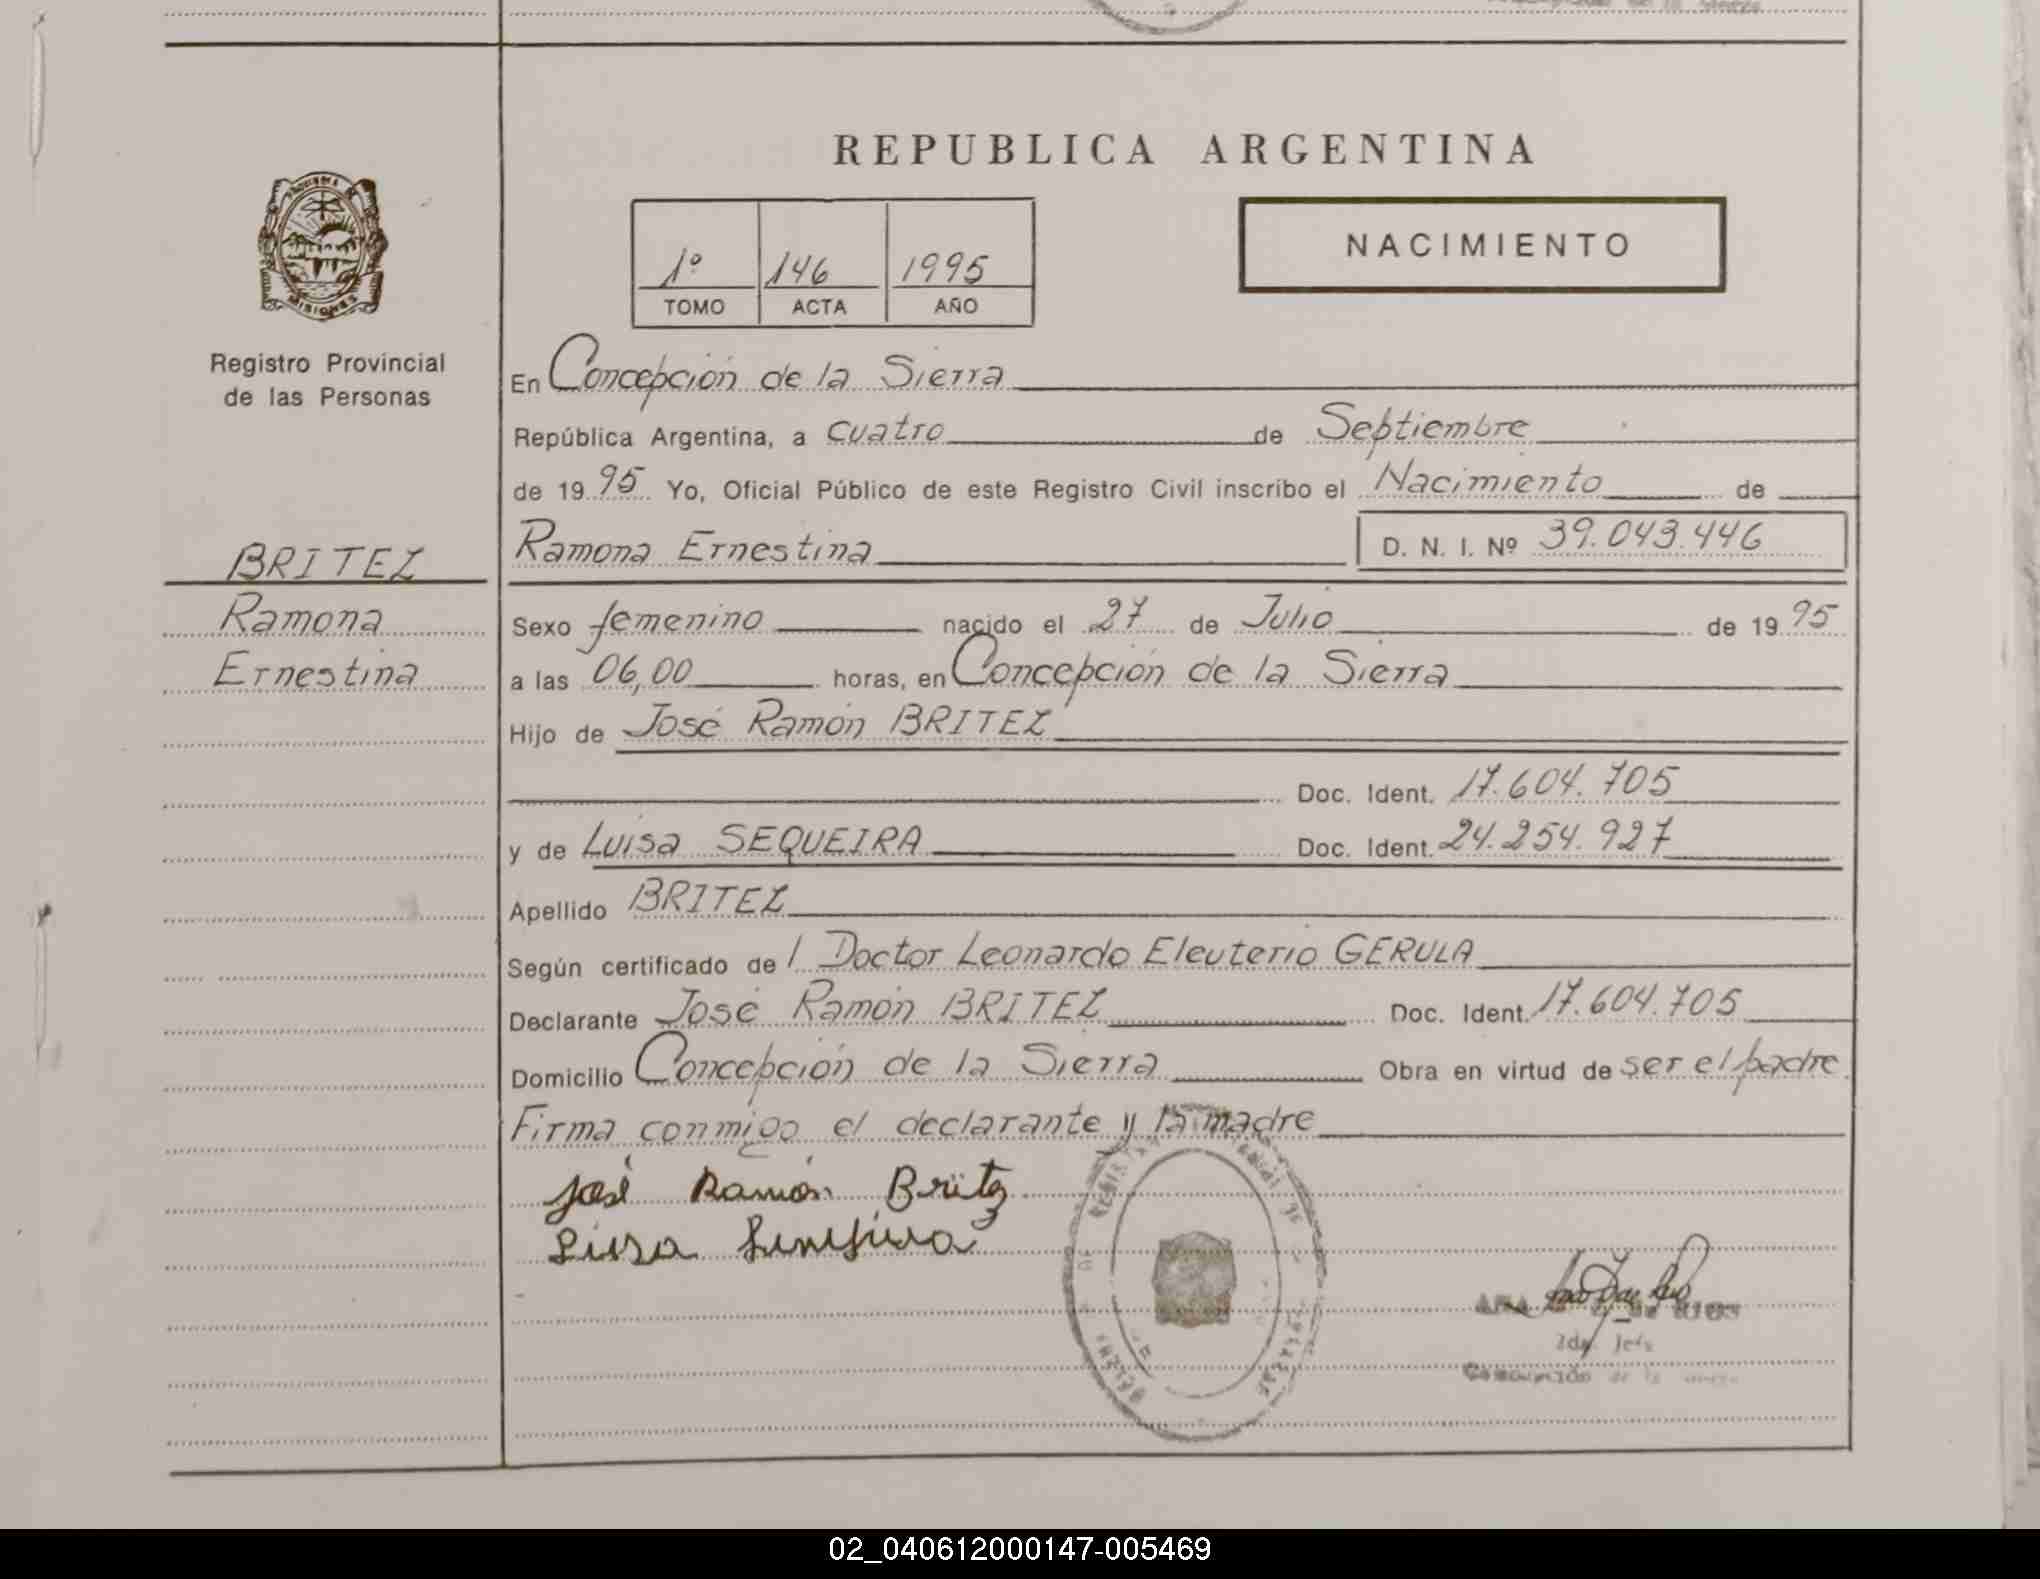 REPUBLICA ARGENTINA
NACIMIENTO
1º 146 1995
TOMO ACTA AÑO
MISIONES
Registro Provincial
de las Personas
BRITEZ
Ramona
Ernestina
En Concepción de la Sierra
República Argentina, a cuatro de Septiembre
de 1995 Yo, Oficial Público de este Registro Civil inscribo el Nacimiento de
Ramona Ernestina D. N. I. Nº 39.043.446
Sexo femenino nacido el 27 de Julio de 1995
a las 06,00 horas, en Concepción de la Sierra
Hijo de José Ramón BRITEZ
Doc. Ident. 17.604.705
y de Luisa SEQUEIRA Doc. Ident. 24.254.927
Apellido BRITEZ
Según certificado de l Doctor Leonardo Eleuterio GERULA
Declarante José Ramón BRITEZ Doc. Ident. 17.604.705
Domicilio Concepción de la Sierra Obra en virtud de ser el padre
Firma conmigo el declarante y la madre
José Ramón Britez
Luisa
02_040612000147-005469